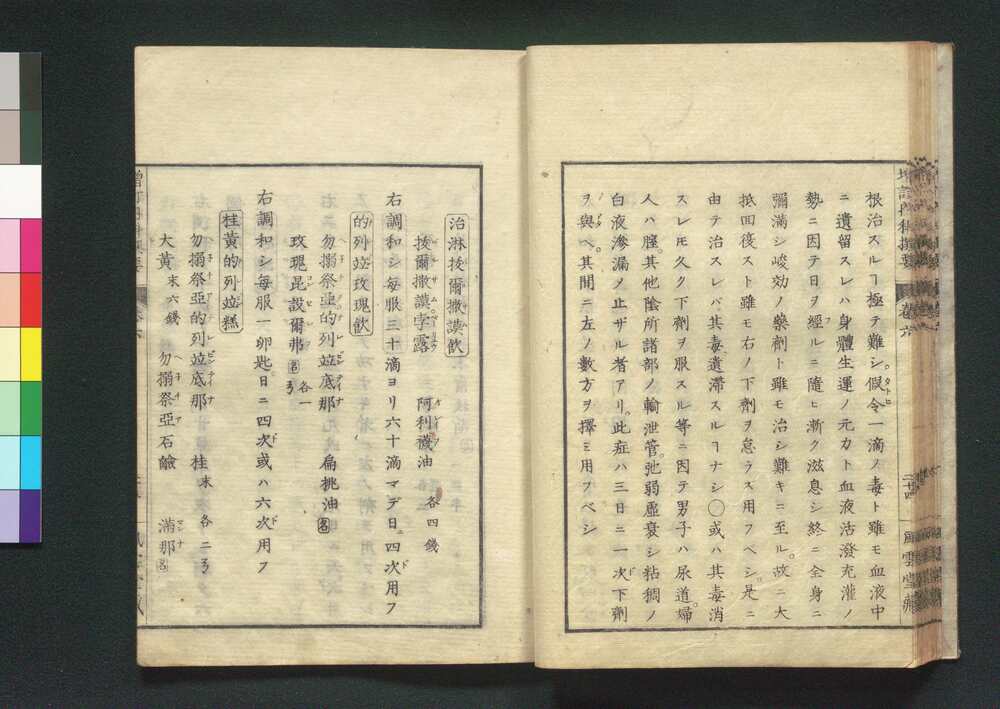 根治スルヿ極テ難シ。假令一滴ノ毒ト雖モ血液中
ニ遺留スレハ身體生運ノ元力ト血液活潑充灌ノ
勢ニ因テ日ヲ經ルニ隨ヒ漸ク滋息シ終ニ全身ニ
彌滿シ峻効ノ藥劑ト雖モ治シ難キニ至ル。故ニ大
抵回復スト雖モ右ノ下劑ヲ怠ラス用フベシ是ニ
由テ治スレバ其毒遺滯スルヿナシ〇或ハ其毒消
スレ𪜈久ク下劑ヲ服スル等ニ因テ男子ハ尿道。婦
人ハ膣。其他陰所諸部ノ輸泄管。弛弱虛衰シ粘稠ノ
白液滲漏ノ止ザル者アリ。此症ハ三日ニ一次下劑
ヲ與ベ。其間ニ左ノ數方ヲ擇ミ用フベシ
治淋拔爾撒謨飲
拔爾撒謨孛露 阿利襪油 各四錢
右調和シ每服三十滴ヨリ六十滴マデ日ニ四次用フ
的列竝玫瑰飲
勿搦祭亞的列竝底那 扁桃油
玫瑰昆設爾弗 各一
右調和シ每服一卵匙。日ニ四次或ハ六次用フ
桂黃的列竝糕
勿搦祭亞的列竝底那 桂末 各二
大黃末六錢 勿搦祭亞石鹼 滿那
卷六
二十四
風雲堂藏